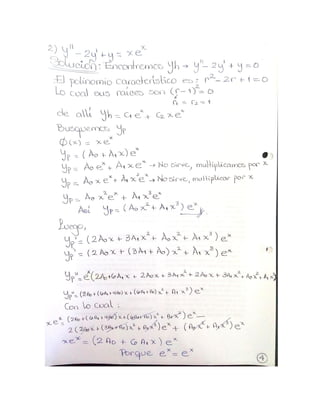 2) y'' - 2y' + y = xe^x
Solución: Encontremos yh → y'' - 2y' + y = 0
El polinomio característico es: r² - 2r + 1 = 0
Lo cual sus raices son (r-1)² = 0
r₁ = r₂ = 1
de allí yh = C₁e^x + C₂xe^x
Busquemos yp
Φ(x) = xe^x
yp = (A₀ + A₁x)e^x
yp = A₀e^x + A₁xe^x → No sirve, multiplicamos por x
yp = A₀xe^x + A₁x²e^x → No sirve, multiplicar por x
yp = A₀x²e^x + A₁x³e^x
Así yp = (A₀x² + A₁x³)e^x
Luego,
yp' = (2A₀x + 3A₁x² + A₀x² + A₁x³)e^x
yp' = (2A₀x + (3A₁ + A₀)x² + A₁x³)e^x
yp'' = e^x(2A₀ + 6A₁x + 2A₀x + 3A₁x² + 2A₀x + 3A₁x² + A₀x² + A₁x³)
yp'' = (2A₀ + (6A₁ + 4A₀)x + (6A₁ + A₀)x² + A₁x³)e^x
Con lo cual:
xe^x = (2A₀ + (6A₁ + 4A₀)x + (6A₁ + A₀)x² + A₁x³)e^x -
2(2A₀x + (3A₁ + A₀)x² + A₁x³)e^x + (A₀x² + A₁x³)e^x
xe^x = (2A₀ + 6A₁x)e^x
Porque e^x = e^x
4